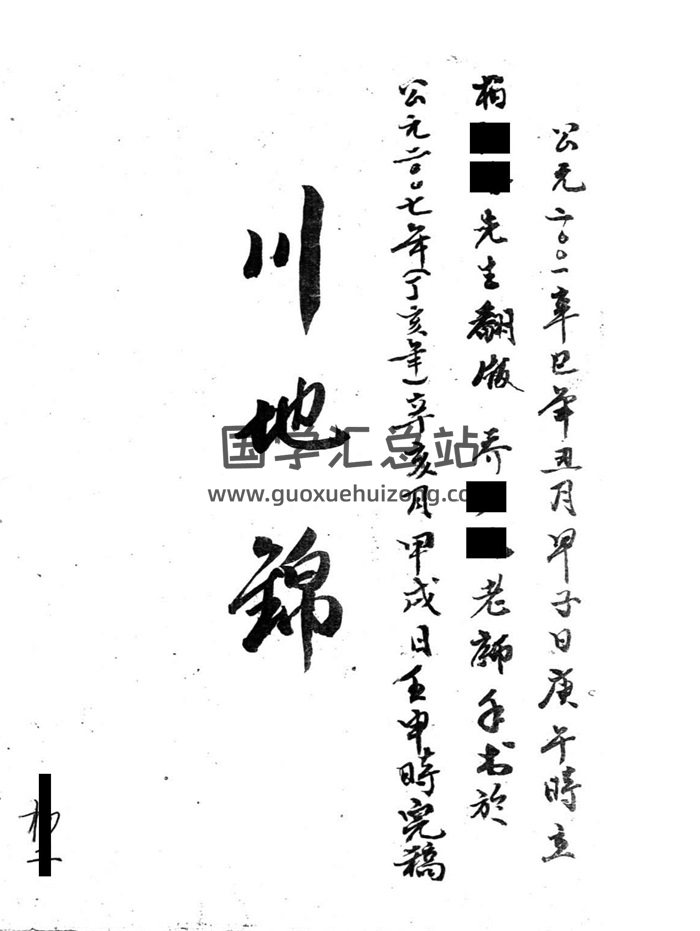 公元二〇〇一辛巳年丑月甲子日庚午時立
先生翻版 老師手书於
公元二〇〇七年(丁亥年)辛亥月甲戌日壬申時完稿
川地錦
国学汇总站
www.guoxuehuizong.co